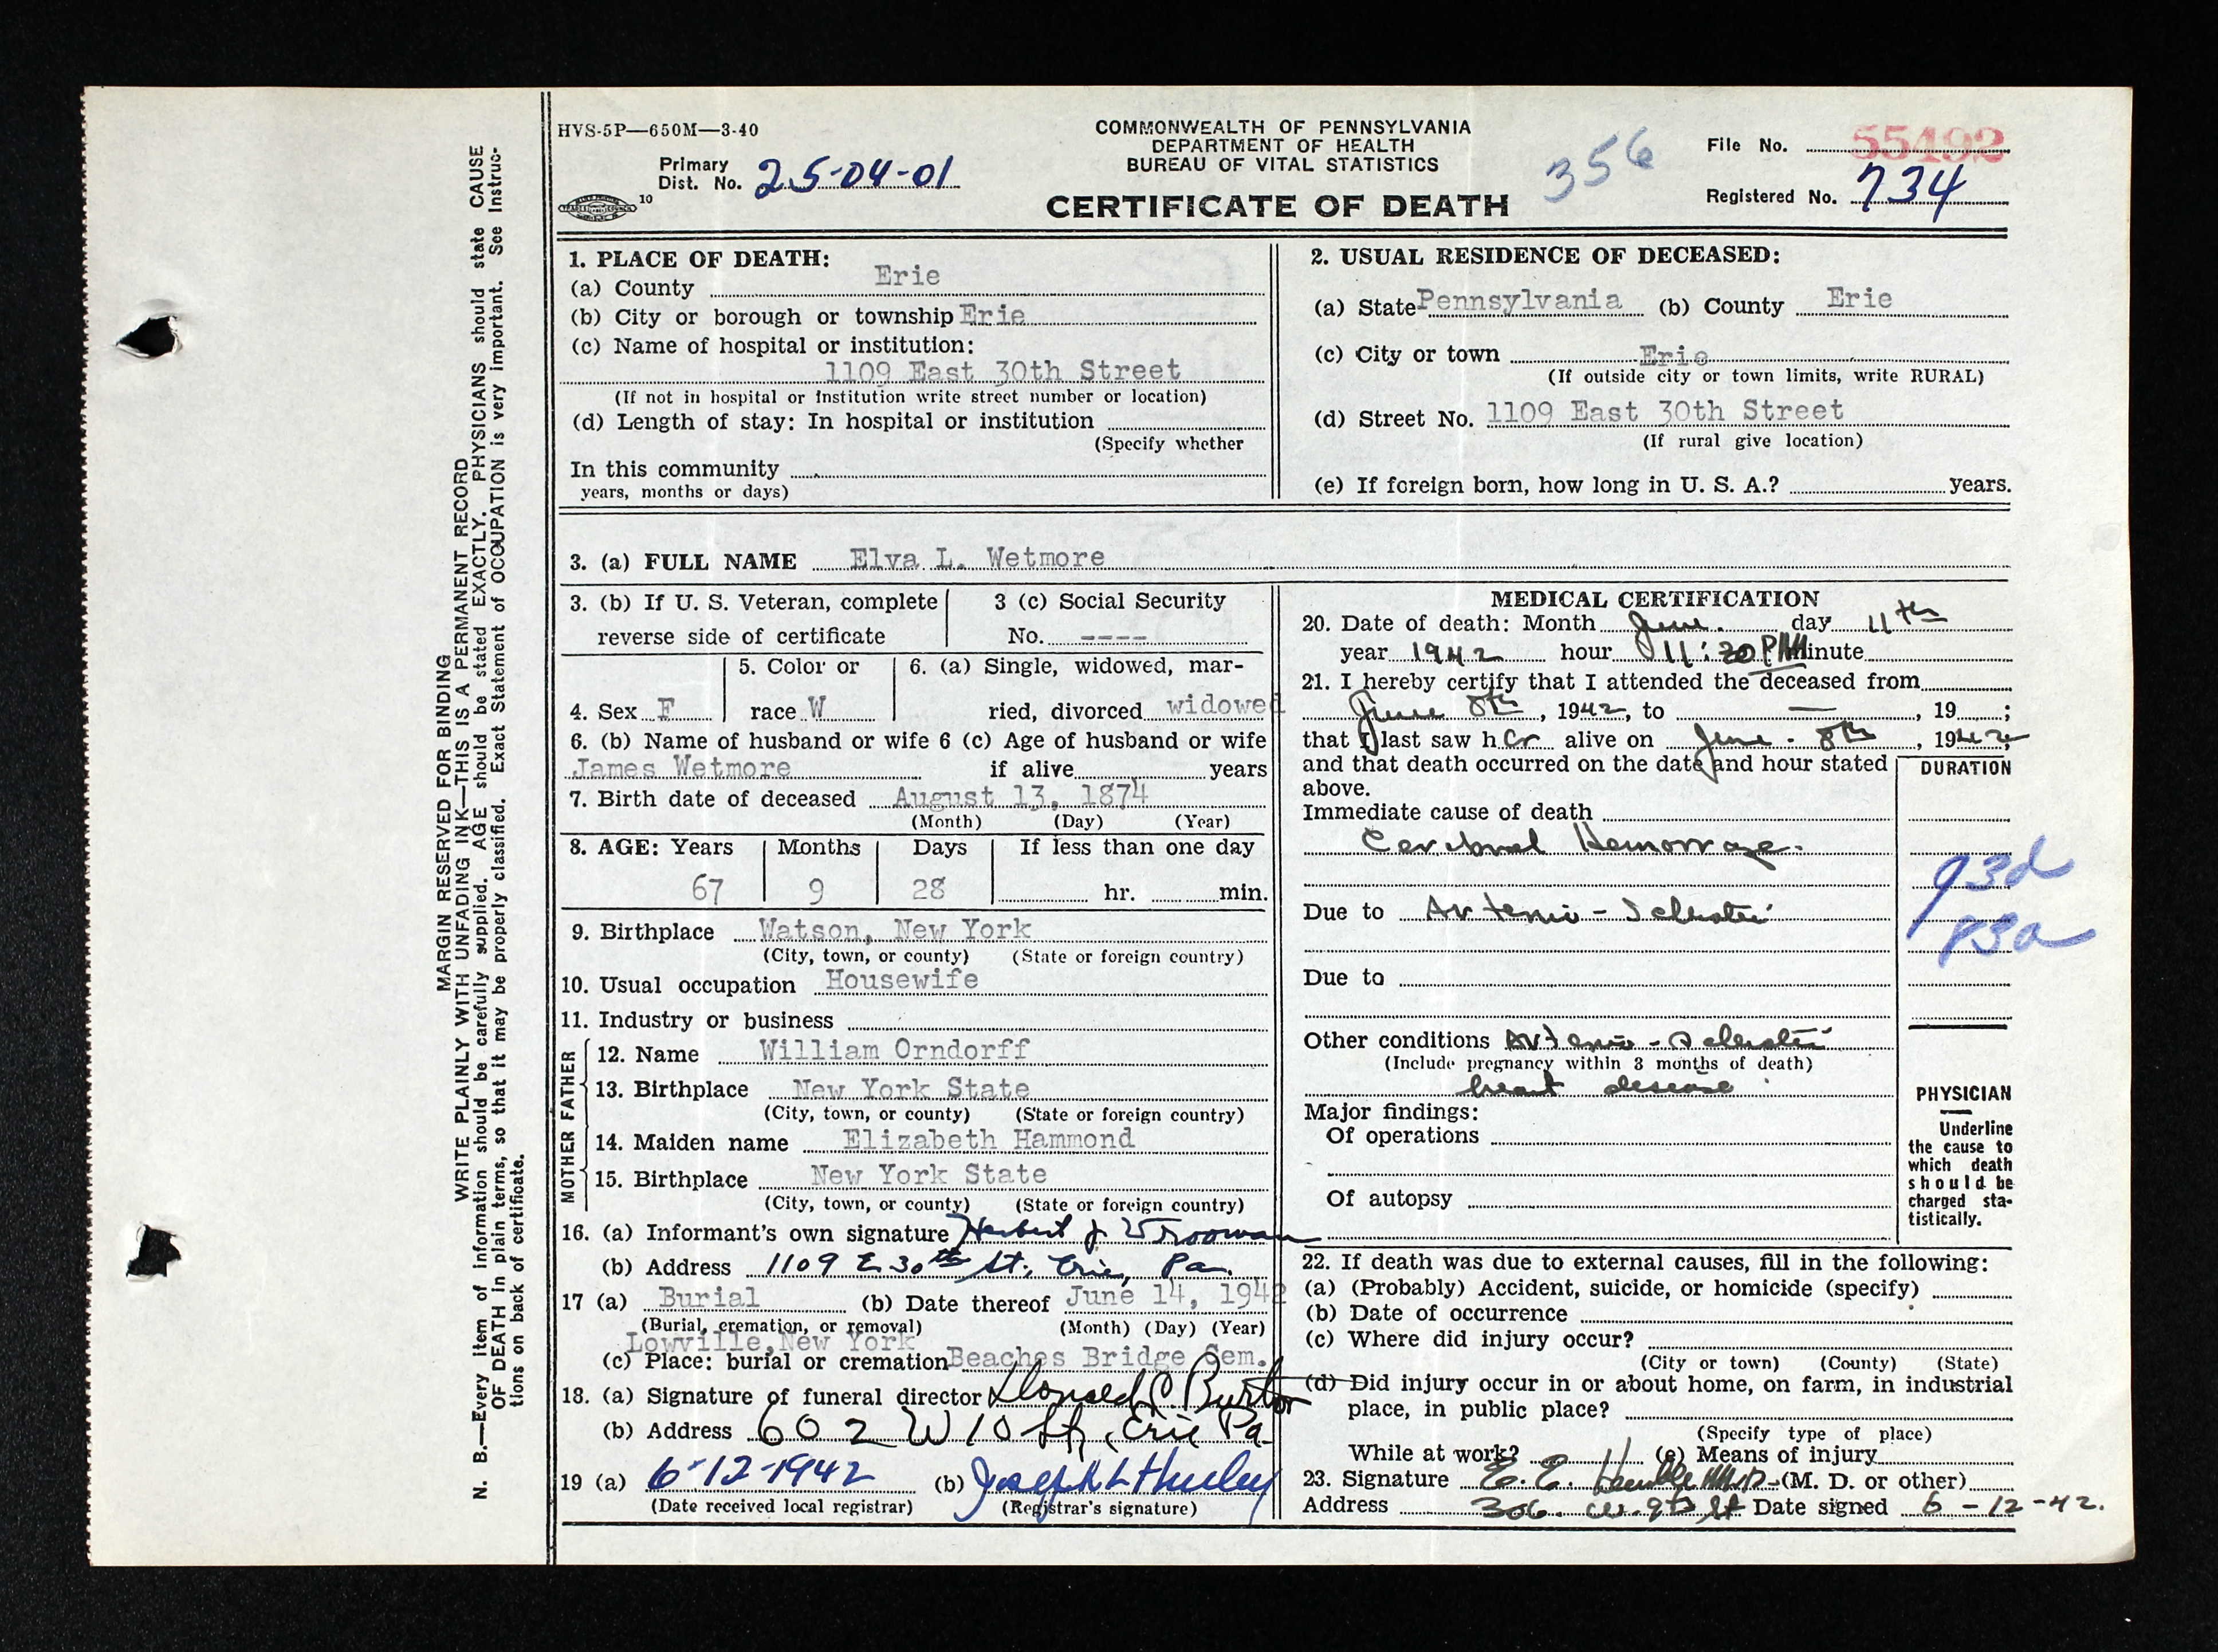 HVS-5P—650M—3-40
COMMONWEALTH OF PENNSYLVANIA
DEPARTMENT OF HEALTH
BUREAU OF VITAL STATISTICS
CERTIFICATE OF DEATH
Primary
Dist. No. 25-04-01
10
356
File No. 55492
Registered No. 734
MARGIN RESERVED FOR BINDING
WRITE PLAINLY WITH UNFADING INK—THIS IS A PERMANENT RECORD
N. B.—Every item of information should be carefully supplied. AGE should be stated EXACTLY. PHYSICIANS should state CAUSE
OF DEATH in plain terms, so that it may be properly classified. Exact Statement of OCCUPATION is very important. See Instruc-
tions on back of certificate.
1. PLACE OF DEATH:
(a) County Erie
(b) City or borough or township Erie
(c) Name of hospital or institution:
1109 East 30th Street
(If not in hospital or institution write street number or location)
(d) Length of stay: In hospital or institution
(Specify whether
In this community
years, months or days)
2. USUAL RESIDENCE OF DECEASED:
(a) State Pennsylvania (b) County Erie
(c) City or town Erie
(If outside city or town limits, write RURAL)
(d) Street No. 1109 East 30th Street
(If rural give location)
(e) If foreign born, how long in U. S. A.? years.
3. (a) FULL NAME Elva L. Wetmore
3. (b) If U. S. Veteran, complete
reverse side of certificate
3 (c) Social Security
No. ----
4. Sex F
5. Color or
race W
6. (a) Single, widowed, mar-
ried, divorced widowed
6. (b) Name of husband or wife
James Wetmore
6 (c) Age of husband or wife
if alive years
7. Birth date of deceased August 13, 1874
(Month) (Day) (Year)
8. AGE: Years Months Days If less than one day
67 9 28 hr. min.
9. Birthplace Watson, New York
(City, town, or county) (State or foreign country)
10. Usual occupation Housewife
11. Industry or business
FATHER
12. Name William Orndorff
13. Birthplace New York State
(City, town, or county) (State or foreign country)
MOTHER
14. Maiden name Elizabeth Hammond
15. Birthplace New York State
(City, town, or county) (State or foreign country)
16. (a) Informant's own signature Herbert J Vrooman
(b) Address 1109 E 30th St., Erie, Pa.
17 (a) Burial (b) Date thereof June 14, 1942
(Burial, cremation, or removal) (Month) (Day) (Year)
Lowville, New York
(c) Place: burial or cremation Beaches Bridge Cem.
18. (a) Signature of funeral director Donald C. Burton
(b) Address 602 W 10 St, Erie Pa
19 (a) 6-12-1942 (b) Joseph L Hurley
(Date received local registrar) (Registrar's signature)
MEDICAL CERTIFICATION
20. Date of death: Month June. day 11th
year 1942 hour 11:20 PM minute
21. I hereby certify that I attended the deceased from
June 8th, 1942, to —, 19 ;
that I last saw her alive on June - 8th, 1942,
and that death occurred on the date and hour stated
above.
DURATION
Immediate cause of death
Cerebral Hemorrage.
93d
83a
Due to Arterio-Sclerotic
Due to
Other conditions Arterio-Sclerotic
(Include pregnancy within 3 months of death)
heart disease
Major findings:
Of operations
Of autopsy
PHYSICIAN
Underline
the cause to
which death
should be
charged sta-
tistically.
22. If death was due to external causes, fill in the following:
(a) (Probably) Accident, suicide, or homicide (specify)
(b) Date of occurrence
(c) Where did injury occur?
(City or town) (County) (State)
(d) Did injury occur in or about home, on farm, in industrial
place, in public place?
(Specify type of place)
While at work? (e) Means of injury
23. Signature E. E. (M. D. or other)
Address 306 W. 9th St Date signed 6-12-42.